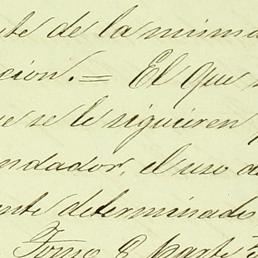 te de la misma
cion. = El que
ue se le siguieren
ndador, el uso de
ente determinado
Tomo 2 parte